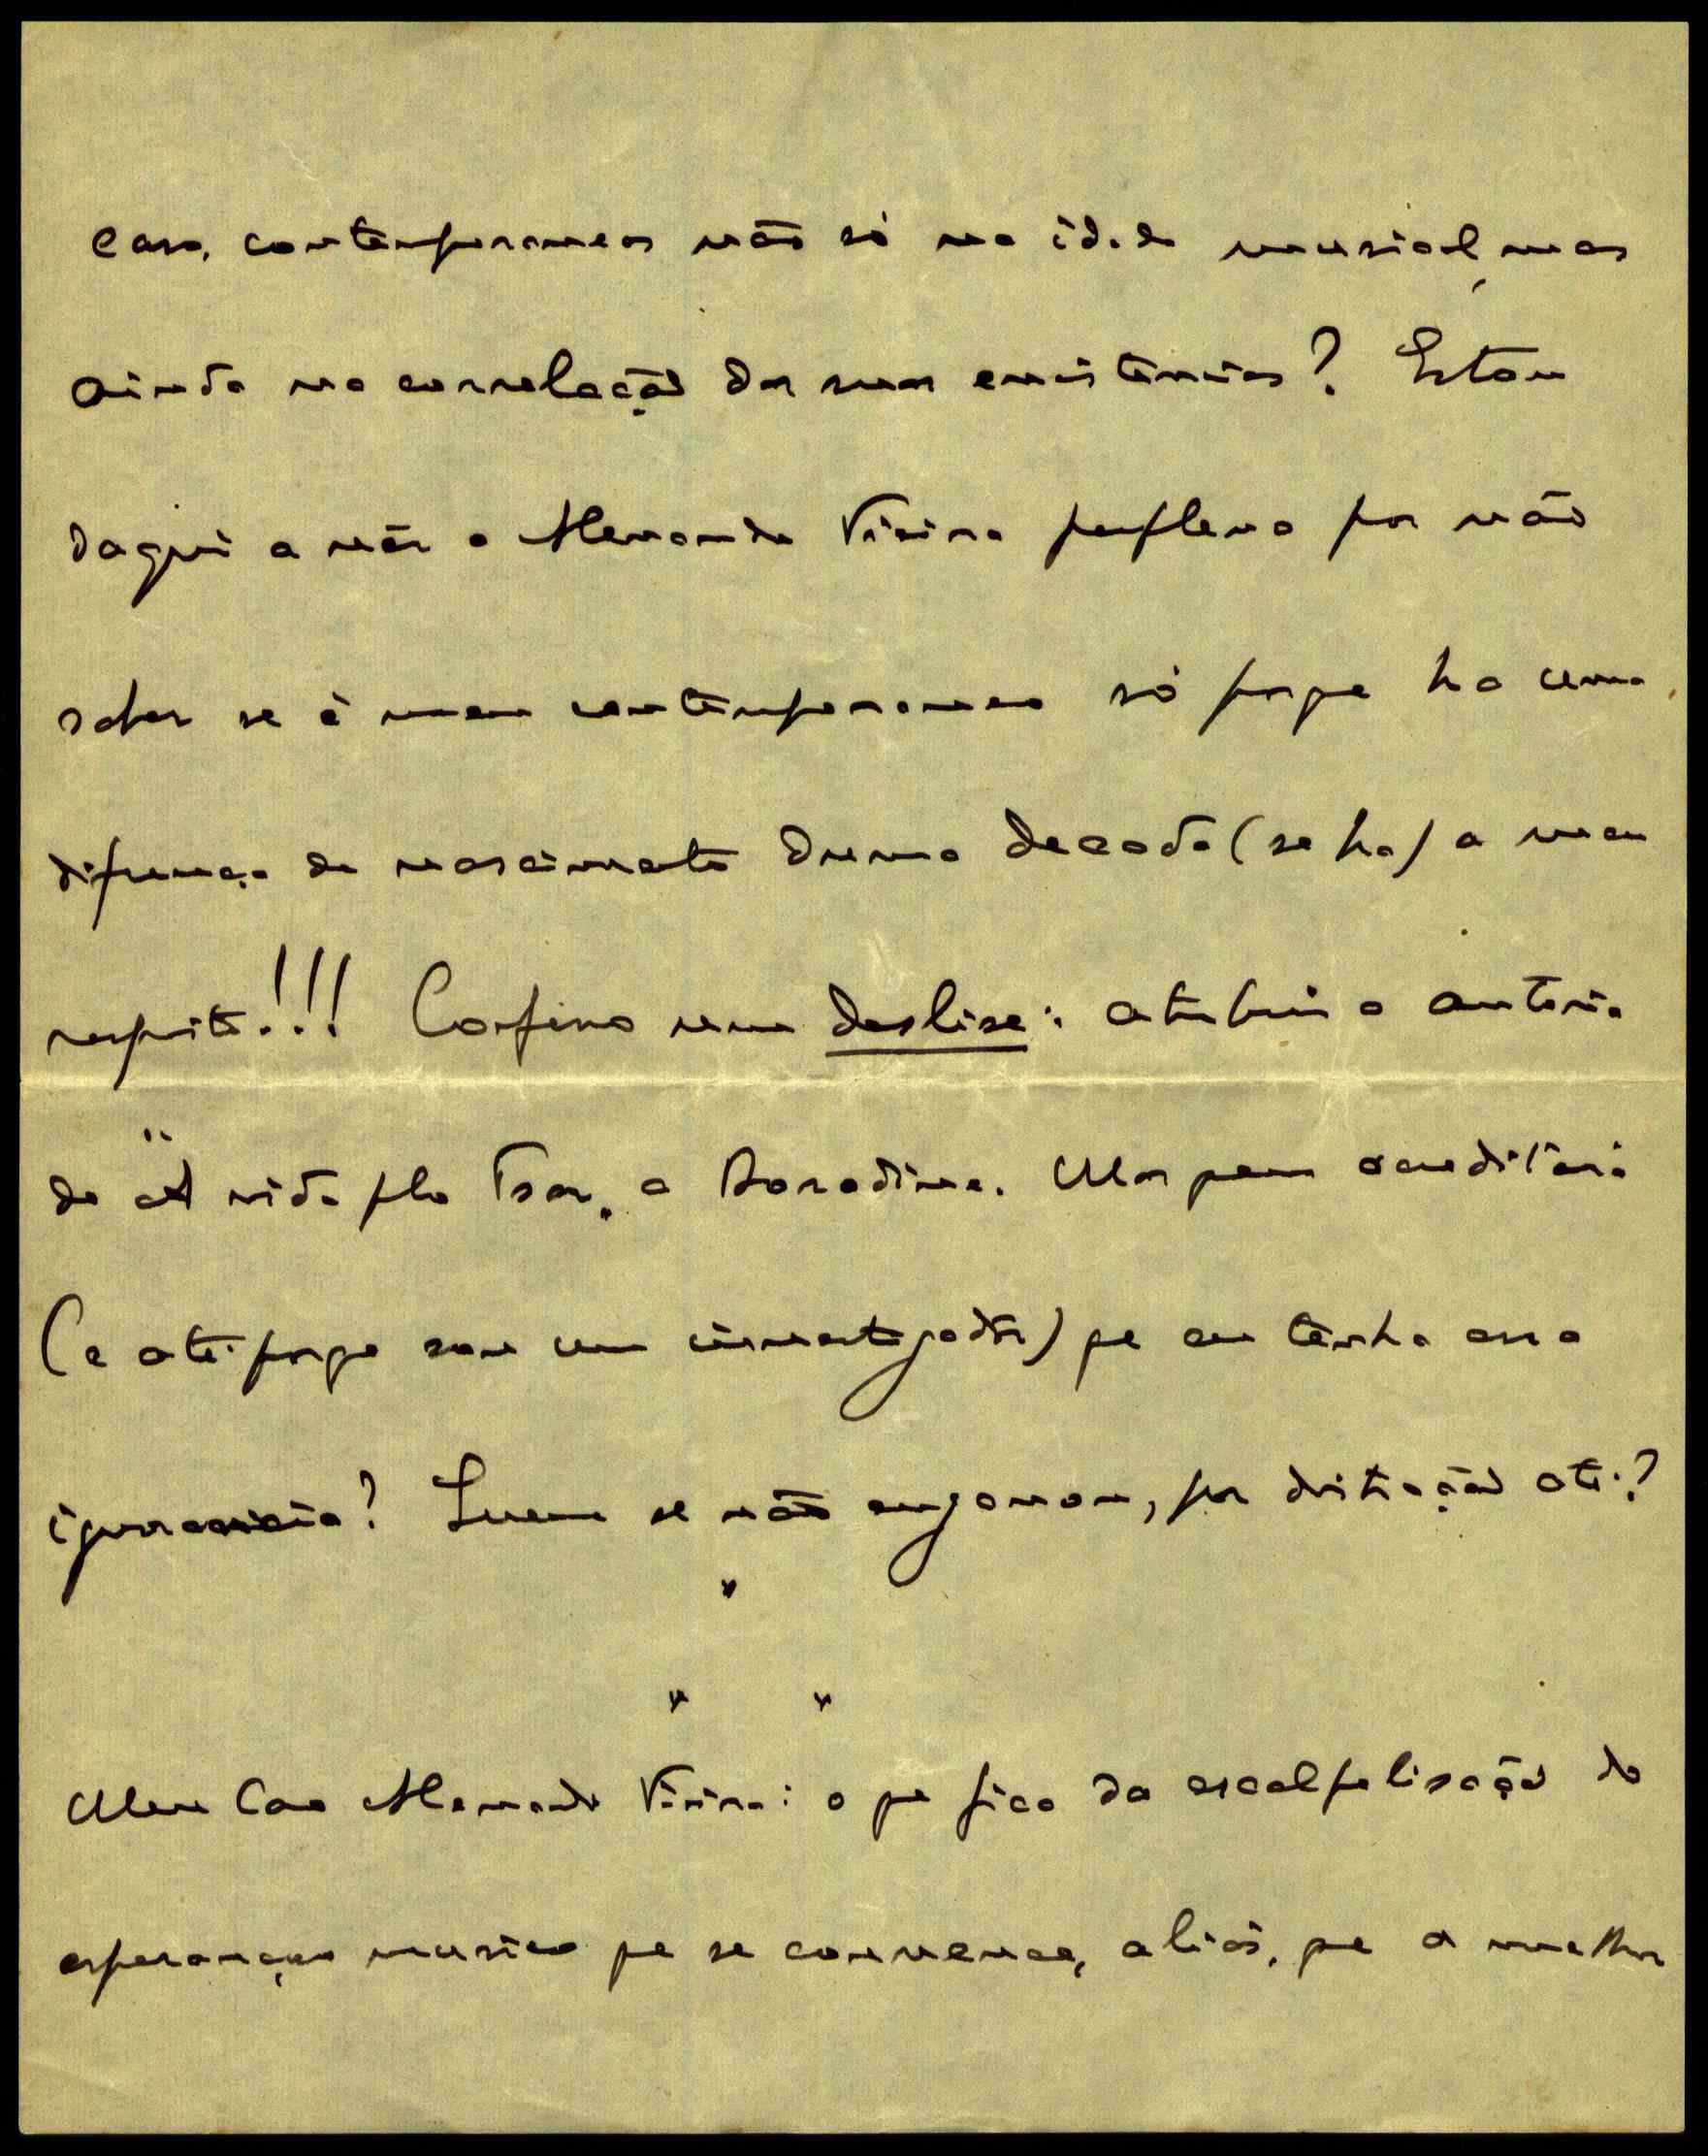 caso, contemporaneos não só na idade musical, mas
ainda na correlação das suas existências? Estou
daqui a vêr o Alexandre Vieira perplexo por não
saber se é meu contemporaneo só porque ha uma
diferença de nascimento duma decada (se ha) a meu
respeito!!! Confesso um deslise: atribui a autoria
da "A vida pelo Tsar" a Borodine. Mas quem acreditará
(e até porque sou um investigador) que eu tenha essa
ignorancia? Quem se não enganou, por distração até?
* * *
Meu Caro Alexandre Vieira: o que fica da escalpelisação do
esperançoso musico que se convence, aliás, que a melhor